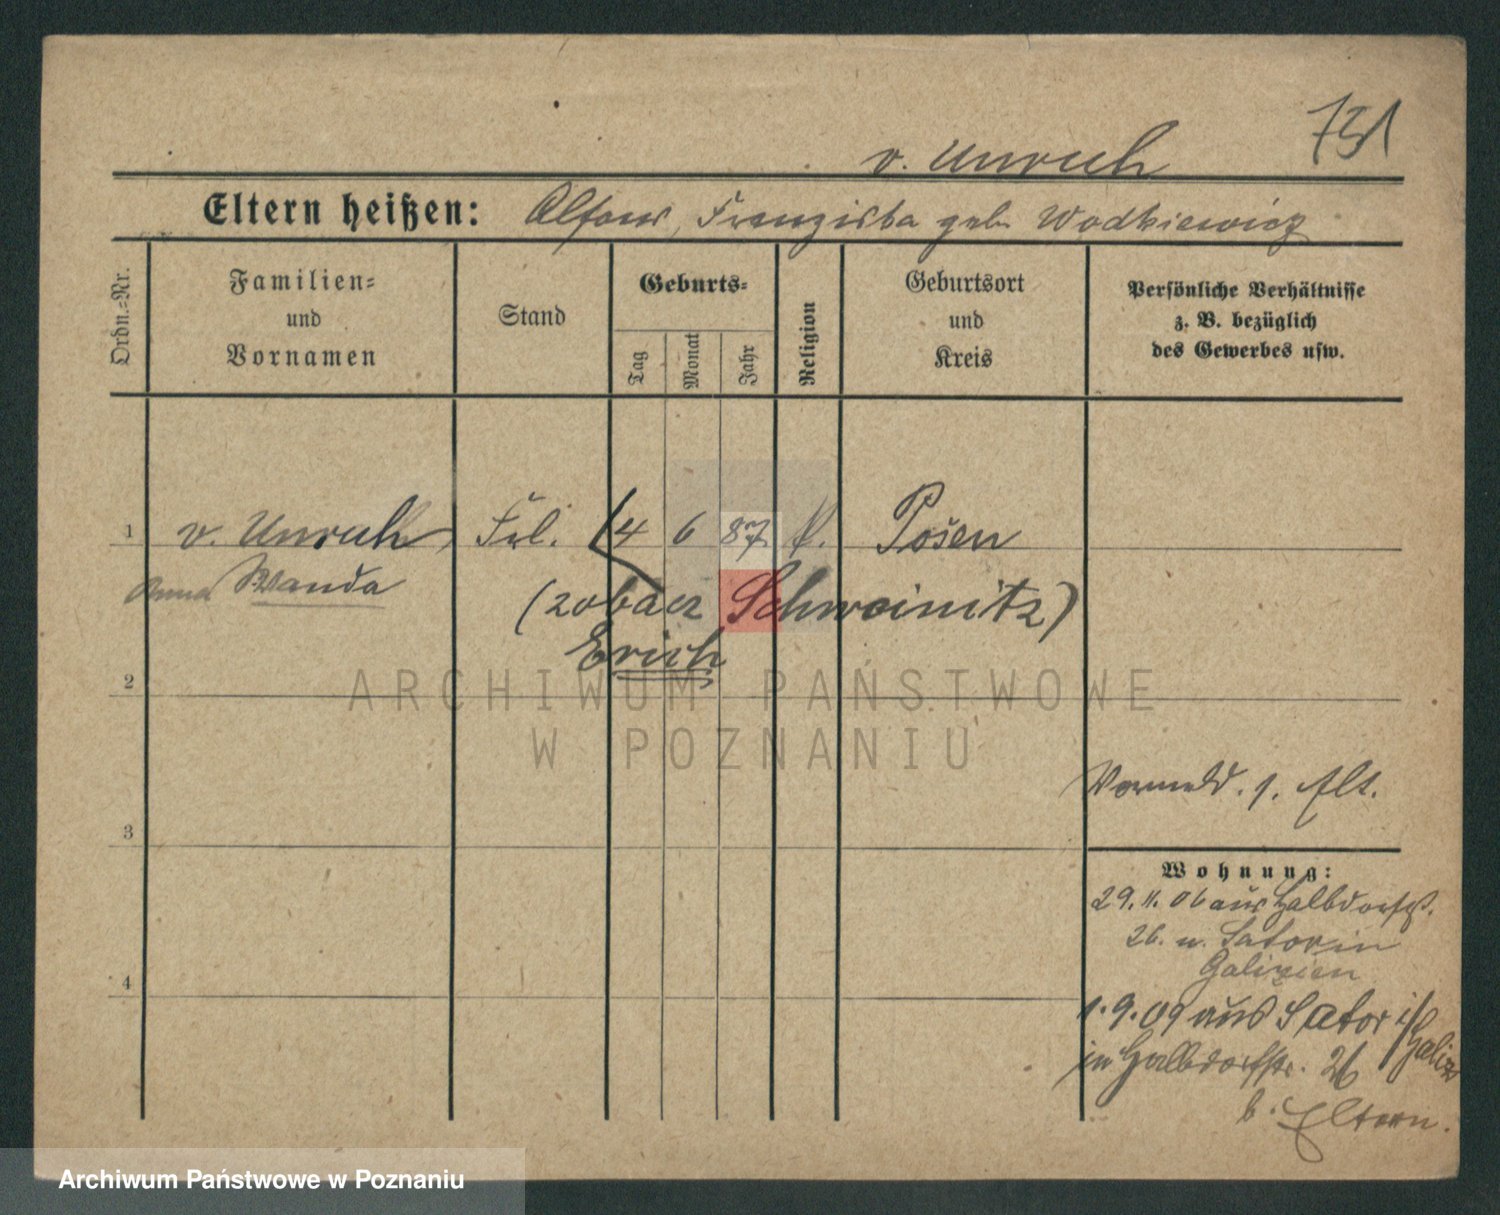 731
v. Unruh
Eltern heißen: Alfons, Franziska geb. Wodkiewicz
Ordn.-Nr.
Familien- und Vornamen
Stand
Geburts-
Tag
Monat
Jahr
Religion
Geburtsort und Kreis
Persönliche Verhältnisse z. B. bezüglich des Gewerbes usw.
1 v. Unruh, Frl. 4 6 87 k. Posen
Anna Wanda
(zobacz Schweinitz)
Erich
2
3
4
Vormeld. s. Elt.
Wohnung:
29. 11. 06 aus Halbdorfstr.
26. n. Sator in
Galizien
1. 9. 09 aus Sator i/Galiz
in Halbdorfstr. 26
b. Eltern.
ARCHIWUM PAŃSTWOWE
W POZNANIU
Archiwum Państwowe w Poznaniu